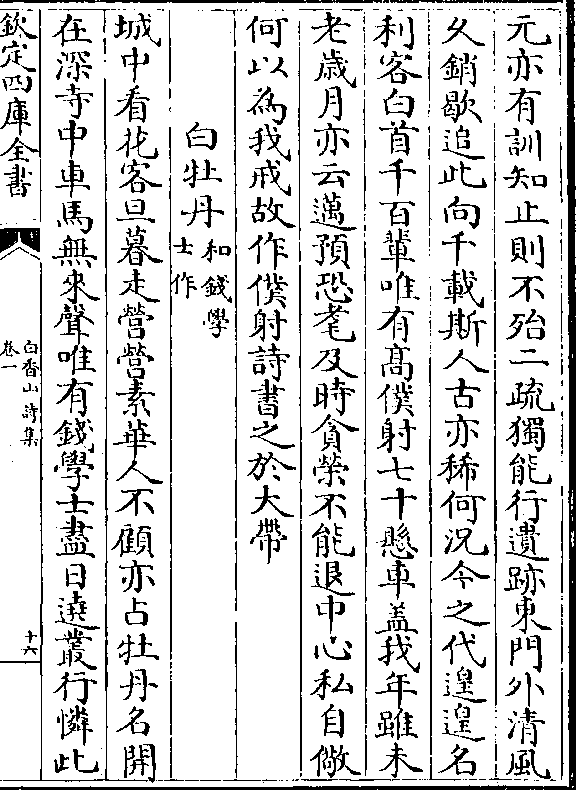 元亦有訓知止則不殆二疏獨能行遺跡東門外清風
久銷歇追此向千載斯人古亦稀何況今之代遑遑名
利客白首千百輩唯有髙僕射七十懸車盖我年雖未
老歲月亦云邁預恐耄及時貪榮不能退中心私自儆
何以為我戒故作僕射詩書之於大帶
白牡丹和錢學士作
城中看花客旦暮走營營素華人不顧亦占牡丹名開
在深寺中車馬無來聲唯有錢學士盡日遶叢行憐此
欽定四庫全書
白香山詩集
卷一
十六